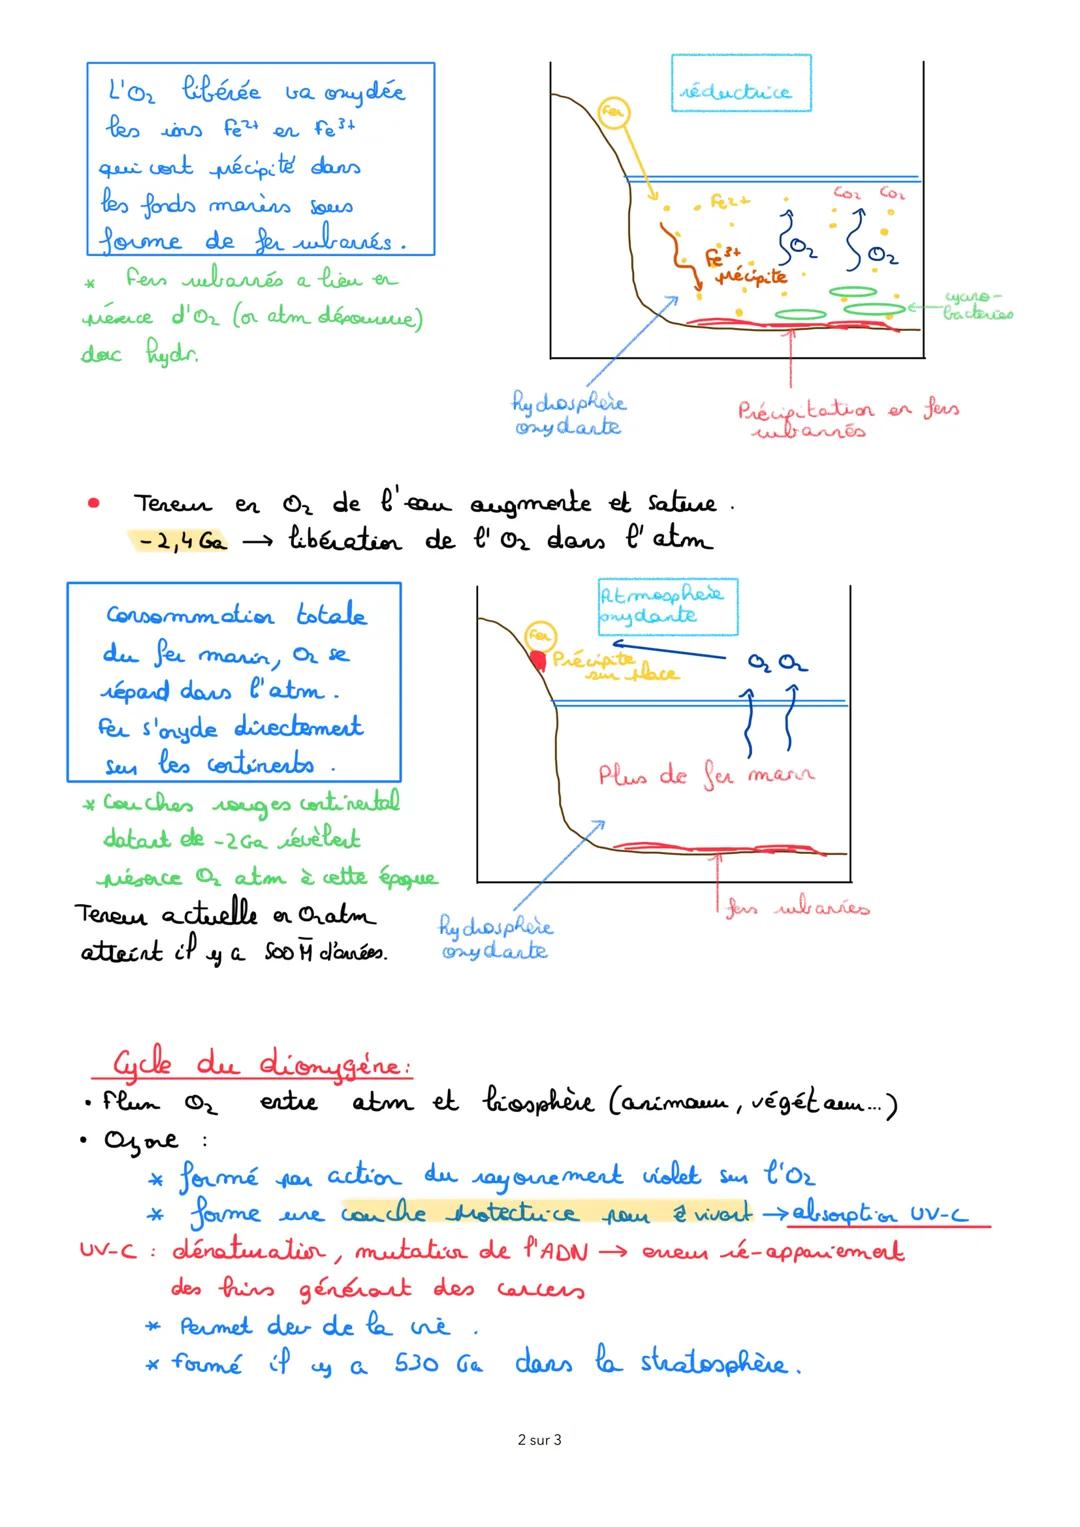 L'O2 libérée va oxydée
les ions Fe2+ en Fe3+
qui vont précipité dans
les fonds marins sous
forme de fer rubannés.
* Fers rubannés a lieu en
présence d'O2 (or atm dépourvue)
donc hydr.
réductrice
Fer
Fe2+
CO2 CO2
O2
O2
Fe3+
précipite
cyano-
bacteries
hydrosphère
oxydante
Précipitation en fers
rubannés
• Teneur en O2 de l'eau augmente et sature.
-2,4 Ga → libération de l'O2 dans l'atm
Consommation totale
du fer marin, O2 se
répand dans l'atm.
Fer s'oxyde directement
sur les continents.
* Couches rouges continental
datant de -2Ga révèlent
présence O2 atm à cette époque
Teneur actuelle en O2 atm
atteint il y a 500 M d'années.
Atmosphère
oxydante
Fer
Précipite
sur place
O2 O2
Plus de fer marin
hydrosphère
oxydante
fers rubannés
Cycle du dioxygène:
• Flux O2 entre atm et biosphère (animaux, végétaux...)
• Ozone :
* formé par action du rayonnement violet sur l'O2
* forme une couche protectrice pour ê vivant → absorption UV-C
UV-C : dénaturation, mutation de l'ADN → erreur ré-appariement
des brins générant des cancers
* Permet dev de la vie.
* Formé il y a 530 Ga dans la stratosphère.
2 sur 3